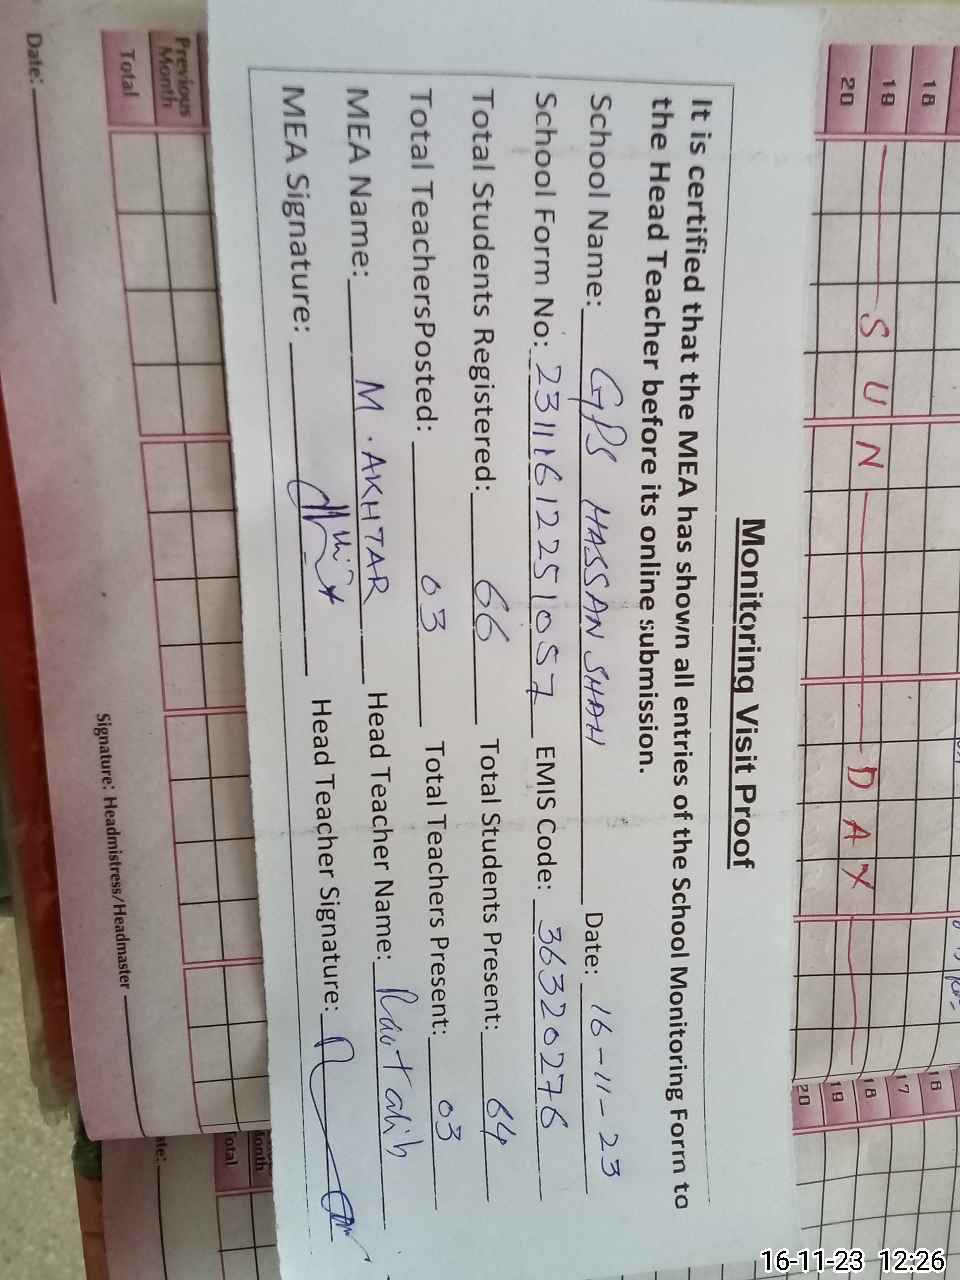 Monitoring Visit Proof
It is certified that the MEA has shown all entries of the School Monitoring Form to
the Head Teacher before its online submission.
School Name: GPS HASSAN SHAH Date: 16-11-23
School Form No: 2311612251057 EMIS Code: 36320276
Total Students Registered: 66 Total Students Present: 64
Total TeachersPosted: 03 Total Teachers Present: 03
MEA Name: M. AKHTAR Head Teacher Name: Rao Talib
MEA Signature: Head Teacher Signature:
18
19
20
SUN DAY
16
17
18
19
20
Previous
Month
Total
Date:
Signature: Headmistress/Headmaster
onth
otal
ate:
16-11-23 12:26